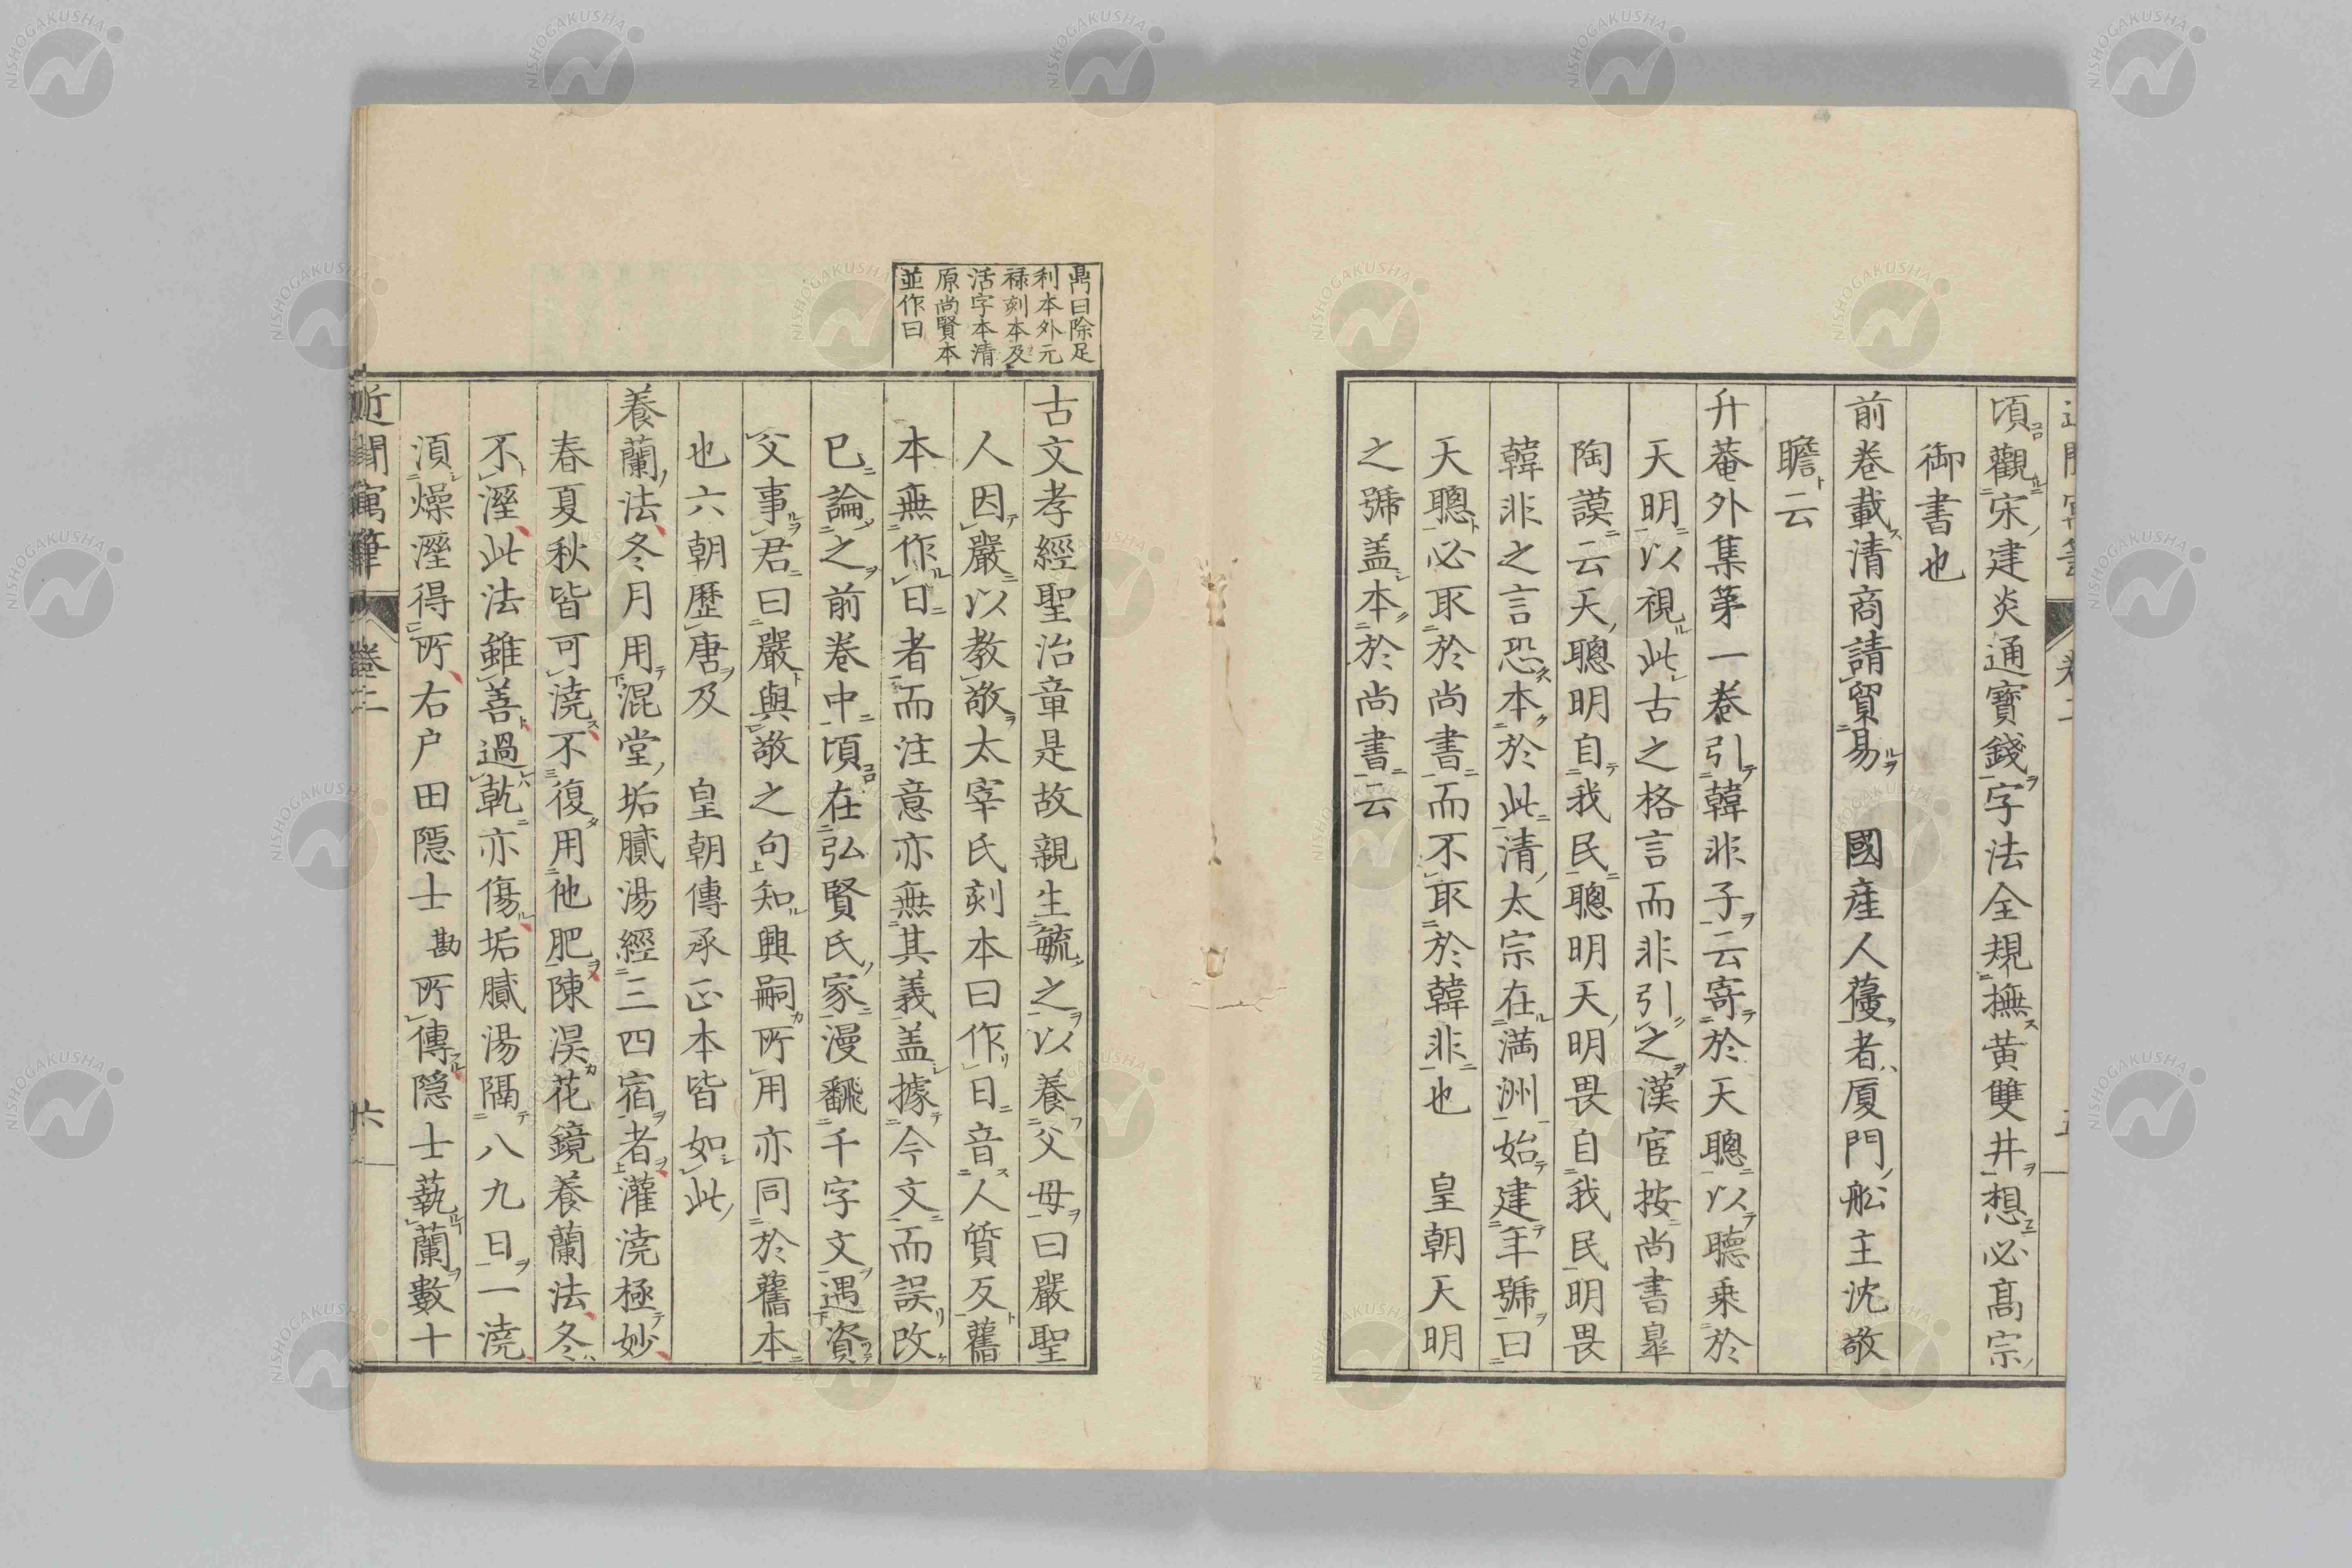 頃觀宋建炎通寶錢字法全規撫黄雙井想必髙宗
御書也
前卷載清商請貿易　國産人葠者厦門舩主沈敬
瞻云
升菴外集第一卷引韓非子云寄於天聰以聽乗於
天明以視此古之格言而非引之漢宦按尚書臯
陶謨云天聰明自我民聰明天明畏自我民明畏
韓非之言恐本於此清太宗在満洲始建年號曰
天聰必取於尚書而不取於韓非也　皇朝天明
之號盖本於尚書云
鼎曰除足
利本外元
禄刻本及
活字本清
原尚賢本
並作曰
古文孝經聖治章是故親生毓之以養父母曰嚴聖
人因嚴以教敬太宰氏刻本曰作日音人質反舊
本無作日者而注意亦無其義盖據今文而誤改
已論之前卷中頃在弘賢氏家漫飜千字文遇資
父事君曰嚴與敬之句知興嗣所用亦同於舊本
也六朝歷唐及　皇朝傳承正本皆如此
養蘭法冬月用混堂垢膩湯經三四宿者灌澆極妙
春夏秋皆可澆不復用他肥陳淏花鏡養蘭法冬
不溼此法雖善過乾亦傷垢膩湯隔八九日一澆
湏燥溼得所右户田隠士勘所傳隠士蓺蘭數十
近聞寓筆
卷二
六